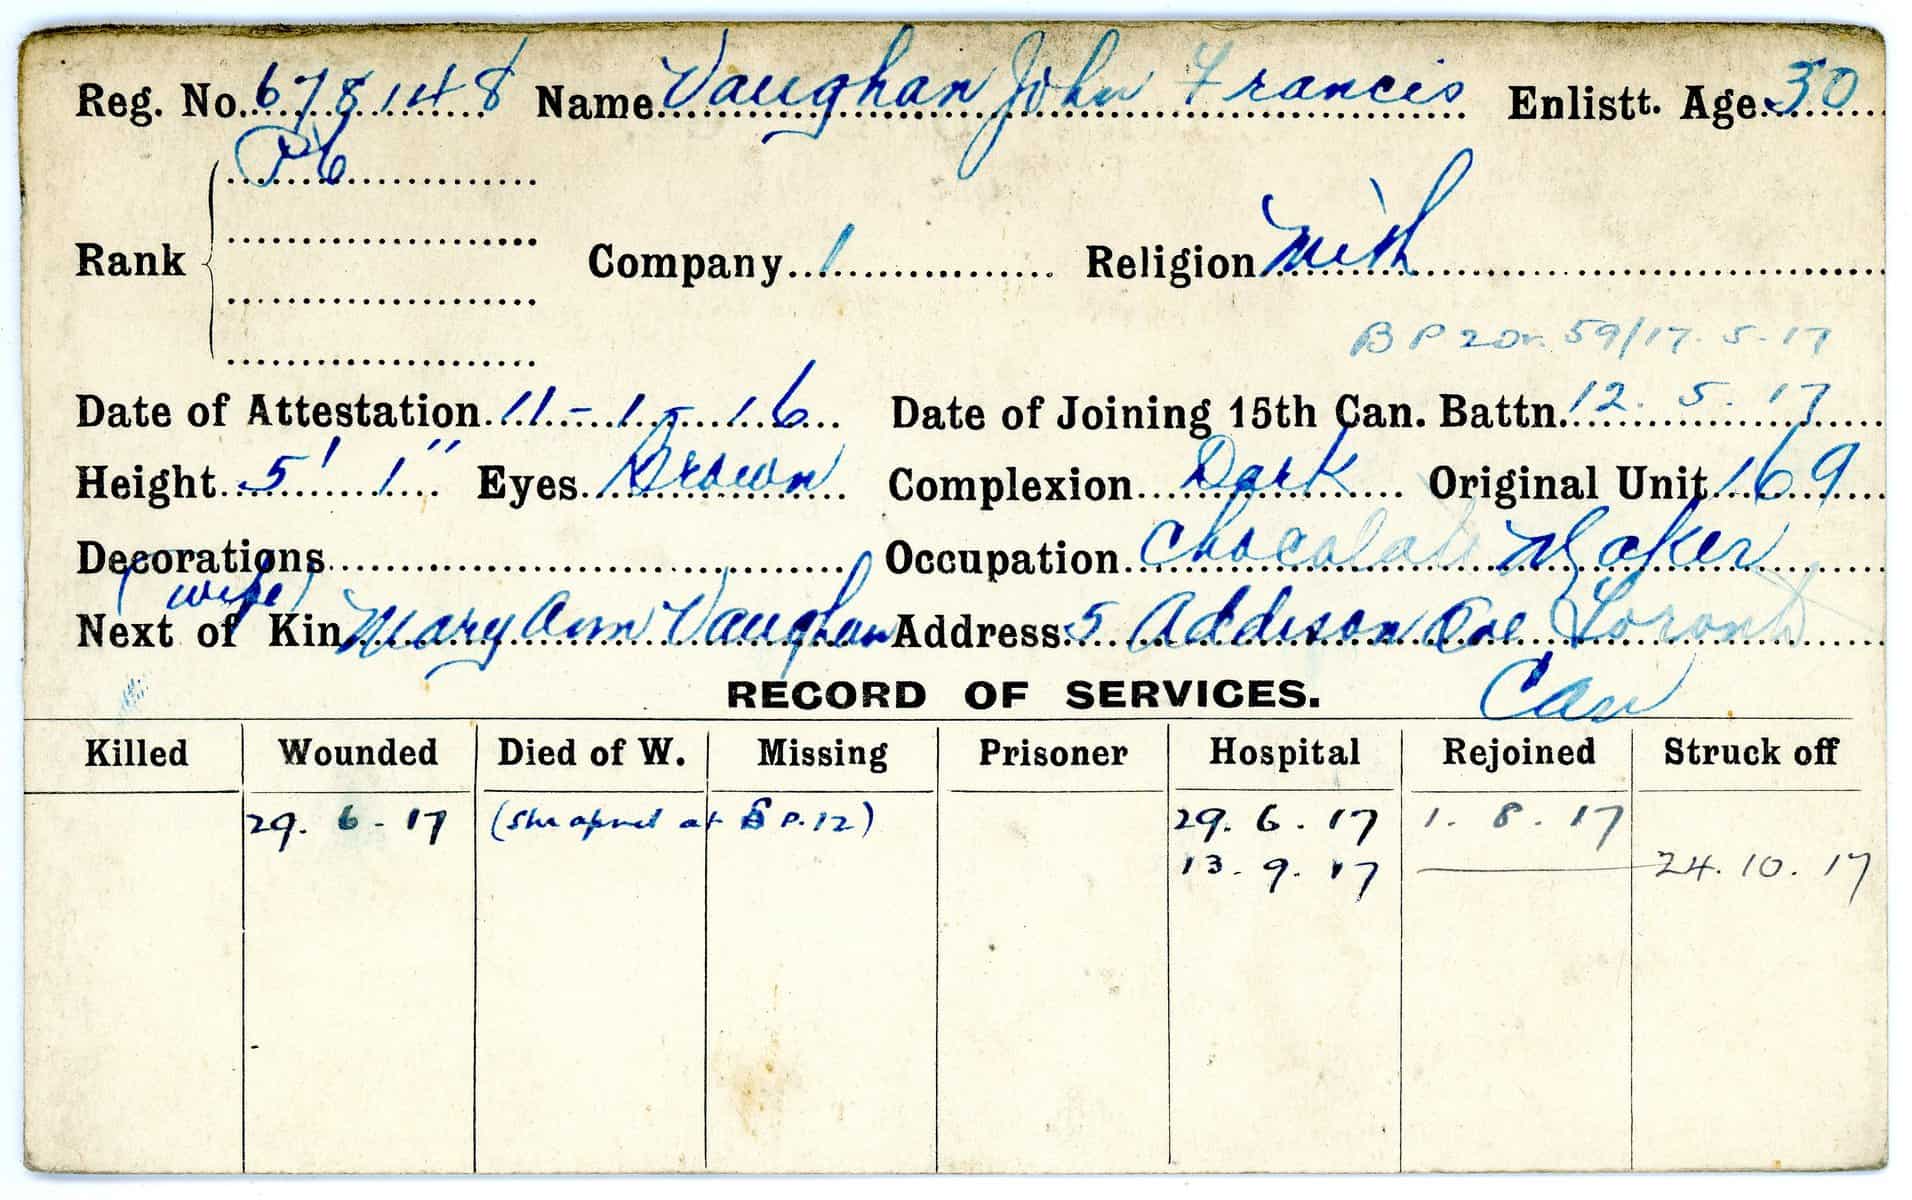 Reg. No. 678148 Name Vaughan John Francis Enlistt. Age 30
Pte
Rank Company 1 Religion Meth
59/17.5.17
Date of Attestation 11-1-16 Date of Joining 15th Can. Battn. 12.5.17
Height 5' 1" Eyes Brown Complexion Dark Original Unit 169
Decorations Occupation Chocolate Maker
(wife)
Next of Kin Mary Ann Vaughan Address 5 Addison Ave Toronto
Can
RECORD OF SERVICES.
Killed Wounded Died of W. Missing Prisoner Hospital Rejoined Struck off
29.6-17 (Shrapnel at P.12) 29.6.17 1.8.17
13.9.17 24.10.17